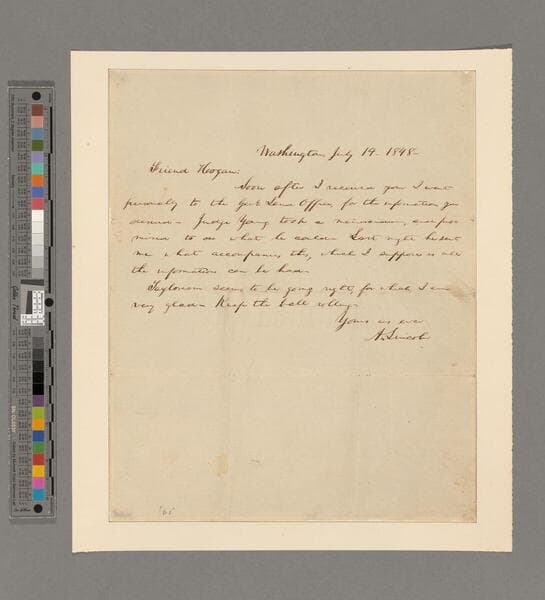 Washington, July 19- 1848-
Friend Hogan:
Soon after I received your I went
personally to the Genl Land Office, for the information you
desired- Judge Young took a memorandum, and promised
to do what he could- Last night he sent
me what accompanies this, which I suppose is all
the information can be had-
Taylorism seems to be going right, for which I am
very glad- Keep the ball rolling-
Yours as ever
A. Lincoln